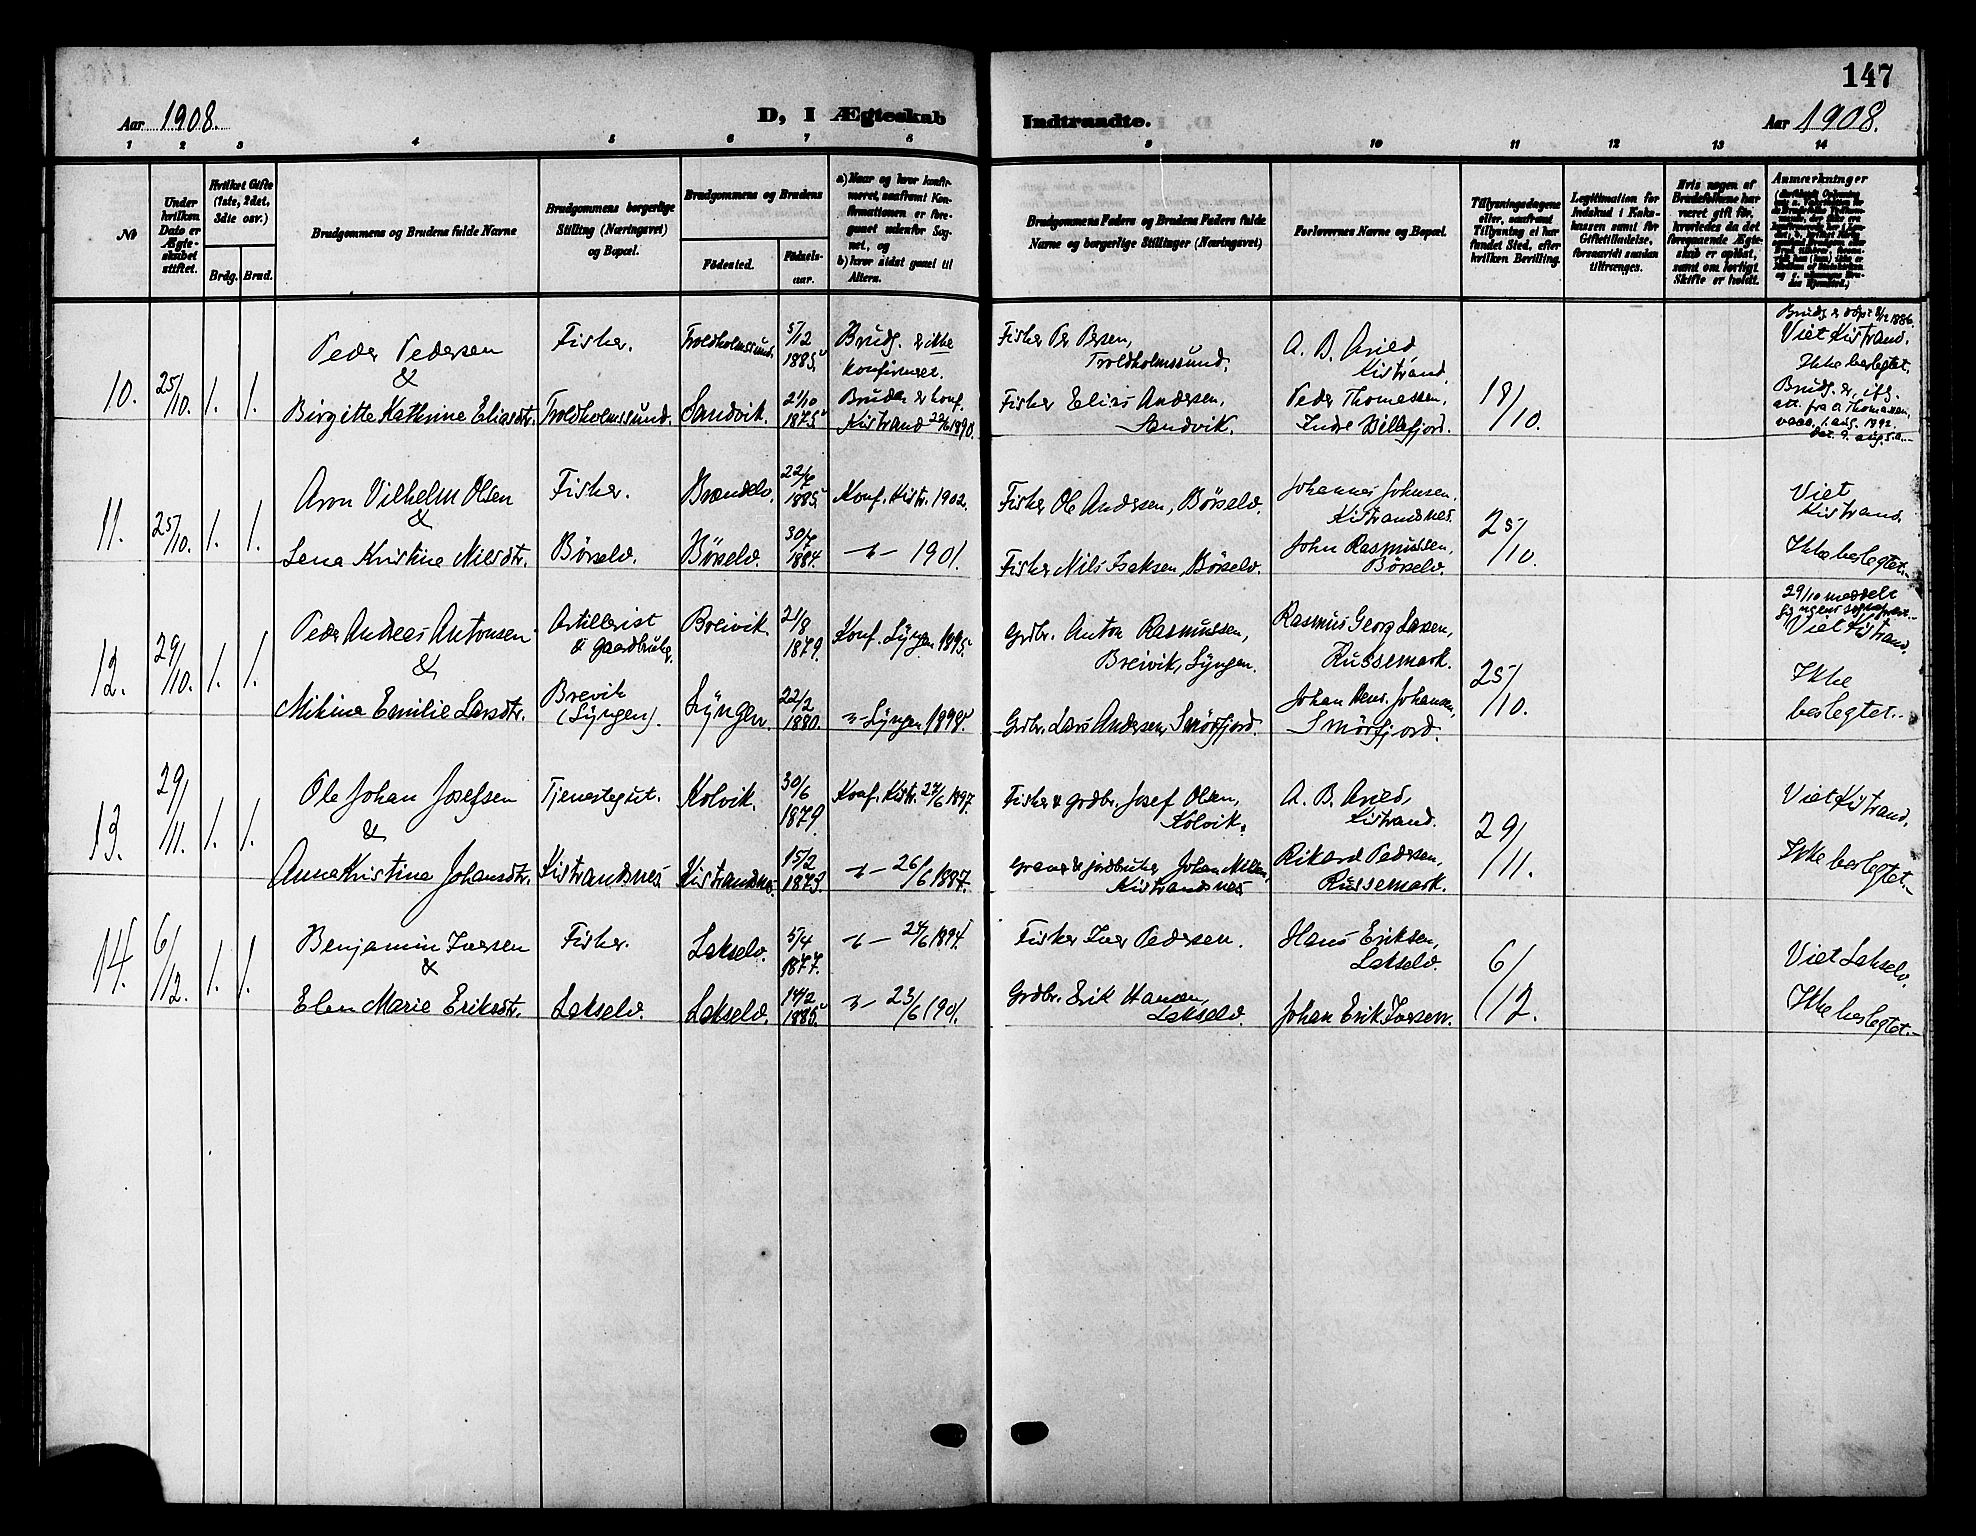 147
Aar 1908.
D, I Ægteskab
Indtraadte.
Aar 1908.
1 2 3 4 5 6 7 8 9 10 11 12 13 14
No
Under hvilken Dato er Ægteskabet stiftet.
Hvilket Gifte (1ste, 2det, 3die osv.)
Brdg. Brud.
Brudgommens og Brudens fulde Navne
Brudgommens borgerlige Stilling (Næringsvei) og Bopæl.
Brudgommens og Brudens
Fødested.
Fødselsaar.
a) Naar og hvor konfirmeret, saafremt Konfirmationen er foregaaet udenfor Sognet, og
b) hvor sidst gaaet til Alters.
Brudgommens Faders og Brudens Faders fulde Navne og borgerlige Stillinger (Næringsvei)
Forlovernes Navne og Bopæl.
Tillysningsdagene eller, saafremt Tillysning ei har fundet Sted, efter hvilken Bevilling.
Legitimation for Indskud i Enkekassen samt for Giftetilladelse, forsaavidt saadan tiltrænges.
Hvis nogen af Brudefolkene har været gift før, hvorledes da det foregaaende Ægteskab er opløst, samt om lovligt Skifte er holdt.
Anmærkninger
10. 25/10. 1. 1.
Peder Pedersen
&
Birgitte Kathrine Eliasdtr.
Fisker.
Troldholmssund.
Troldholmssund.
Sandvik.
5/12 1885.
21/10 1875.
Brudg. er ikke
konfirmeret.
Bruden er konf.
Kistrand 29/6 1890.
Fisker Per Persen,
Troldholmssund.
Fisker Elias Andersen,
Sandvik.
A. B. Arild
Kistrand.
Peder Thomassen,
Indre Billefjord.
18/10.
Viet Kistrand.
Ikke beslegtet.
11. 25/10. 1. 1.
Aron Vilhelm Olsen
&
Lena Kristine Nilsdtr.
Fisker.
Børselv.
Brændelv.
Børselv.
22/7 1885
30/7 1884.
Konf. Kistr. 1902.
-"- 1901.
Fisker Ole Andersen, Børselv.
Fisker Nils Isaksen, Børselv.
Johannes Johnsen,
Kistrandsnes.
John Rasmussen,
Børselv.
25/10.
Viet
Kistrand.
Ikke beslegtet.-
12. 29/10. 1. 1.
Peder Andreas Antonsen
&
Mikina Emilie Larsdtr.
Artillerist
& gaardbruker
Brevik
(Lyngen).
Breivik.
Lyngen.
21/8 1879.
22/2 1880.
Konf. Lyngen 1895.
-"- Lyngen 1895.
Grdbr. Anton Rasmussen,
Breivik, Lyngen.
Grdbr. Lars Andersen, Smørfjord.
Rasmus Georg Larsen,
Russemark.
Johan Hens. Johansen,
Smørfjord.
25/10.
29/10 meddelt
Viet Kistrand.
Ikke
beslegtet.-
13. 29/11. 1. 1.
Ole Johan Josefsen
&
Anna Kristina Johansdtr.
Tjenestegut.
Kistrandsnes
Kolvik.
Kistrandsnes.
30/6 1879.
15/2 1873.
Konf. Kistr. 27/6 1897
-"- 26/6 1887.
Fisker & grdbr. Josef Olsen,
Kolvik.
Graver & jordbruker Johan Nilsen,
Kistrandsnes
A. B. Arild,
Kistrand.
Rikard Pedersen,
Russemark.
29/11.
Viet Kistrand.
Ikke beslegtet.-
14. 6/12. 1. 1.
Benjamin Iversen
&
Elen Marie Eriksdtr.
Fisker.
Lakselv.
Lakselv.
Lakselv.
5/4 1877.
14/2 1885.
-"- 24/6 1894.
-"- 23/6 1901.
Fisker Iver Pedersen.
Grdbr. Erik Hansen,
Lakselv.
Hans Eriksen,
Lakselv.
Johan Erik Iversen.
6/12.
Viet Lakselv.
Ikke beslegtet.-